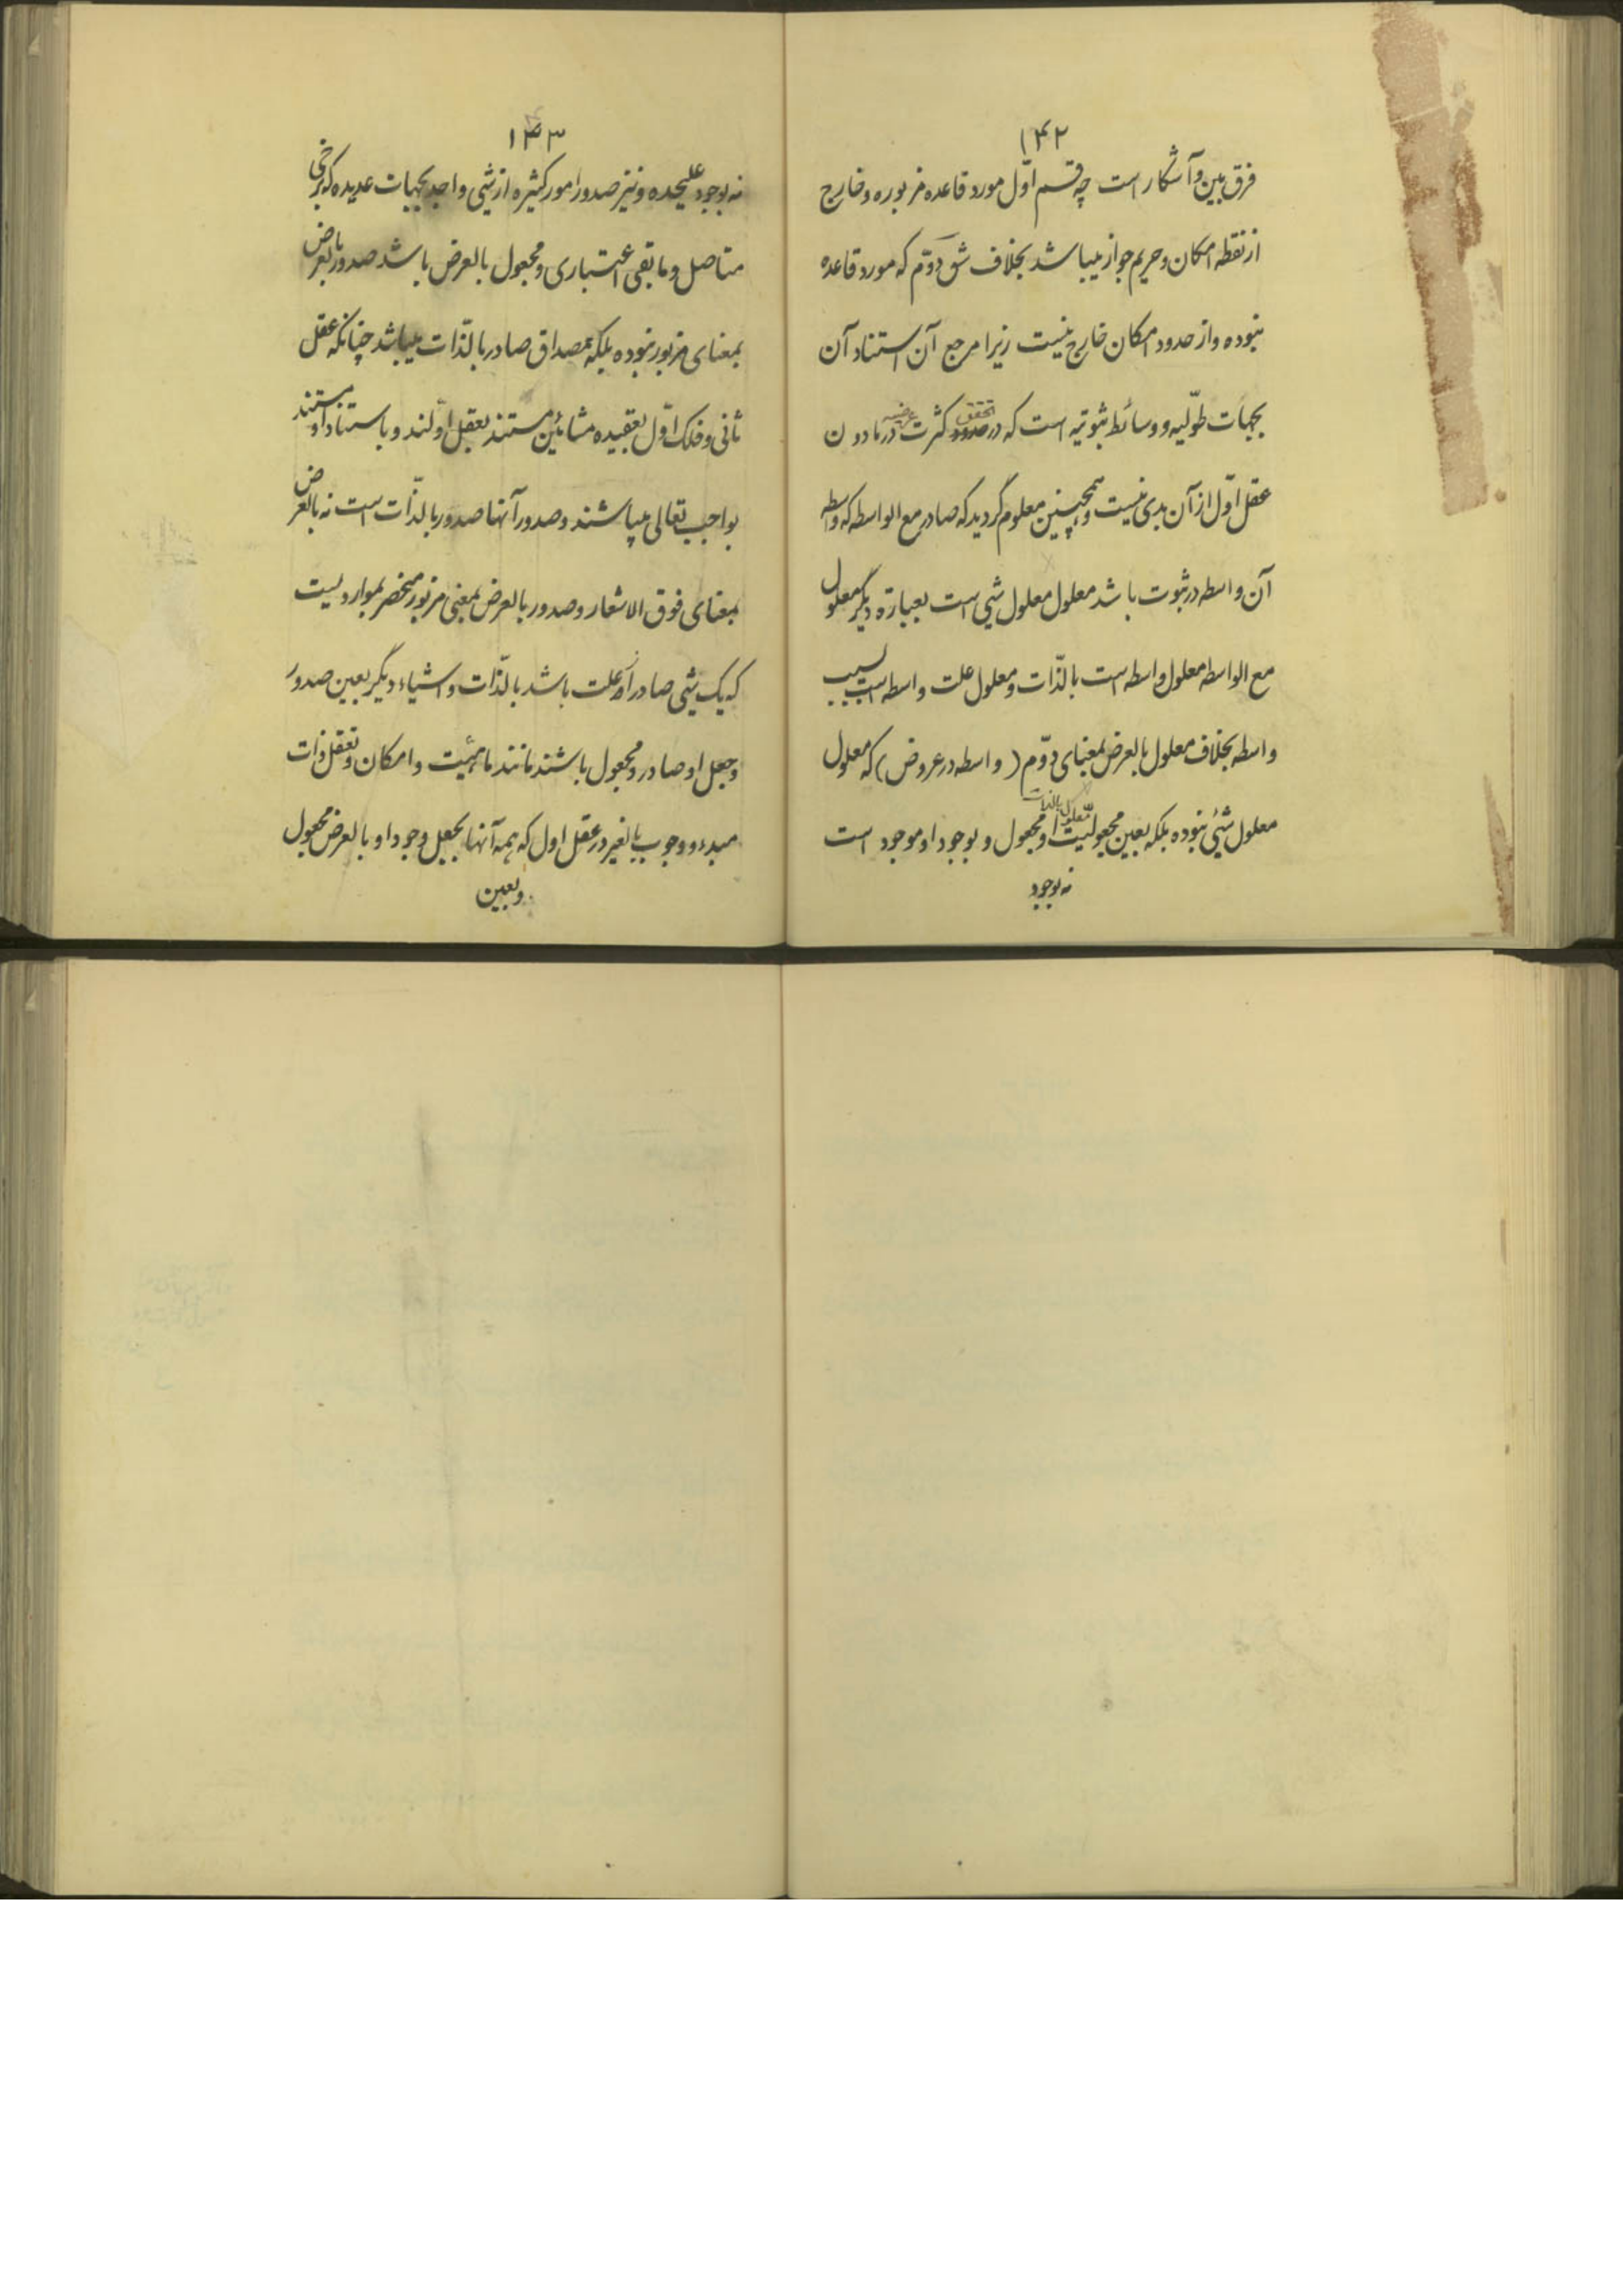 ۱۴۲
فرق بین و آشکار است چه قسم اوّل مورد قاعده مزبوره و خارج
از نقطه امکان و حریم جواز میباشد بخلاف شق دوّم که مورد قاعده
نبوده و از حدود امکان خارج نیست زیرا مرجع آن استناد آن
بجهات طوّلیه و وسائط ثبوتیه است که در تحقق کثرت در مادون
عقل اوّل از آن بدی نیست و همچنین معلوم گردید که صادر مع الواسطه که واسطه
آن واسطه در ثبوت باشد معلول معلول شیئ است بعبارة دیگر معلول
مع الواسطه معلول واسطه است بالذّات و معلول علت واسطه است بسبب
واسطه بخلاف معلول بالعرض بمعنای دوّم (واسطه در عروض) که معلول
معلول شیئ نبوده بلکه بعین مجعولیت معلول بالذات او مجعول و بوجود او موجود است
نه بوجود
۱۴۳
نه بوجود علیحده و نیز صدور امور کثیره از شیئ واحد بجهات عدیده که برخی
متاصل و مابقی اعتباری و مجعول بالعرض باشد صدور بالعرض
بمعنای مزبور نبوده بلکه بمصداق صادر بالذّات میباشد چنانکه عقل
ثانی و فلک اوّل بعقیده مشائین مستند بعقل اوّلند و باستناد او مستند
بواجب تعالی میباشند و صدور آنها صدور بالذّات است نه بالعرض
بمعنای فوق الاشعار و صدور بالعرض بمعنی مزبور منحصر بمواردیست
که یک شیئ صادر از علت باشد بالذّات و اشیاء دیگر بعین صدور
و جعل او صادر و مجعول باشند مانند ماهیّت و امکان و تعقل ذات
مبدء و وجوب بالغیر در عقل اول که همه آنها بجعل وجود او بالعرض مجعول
و بعین